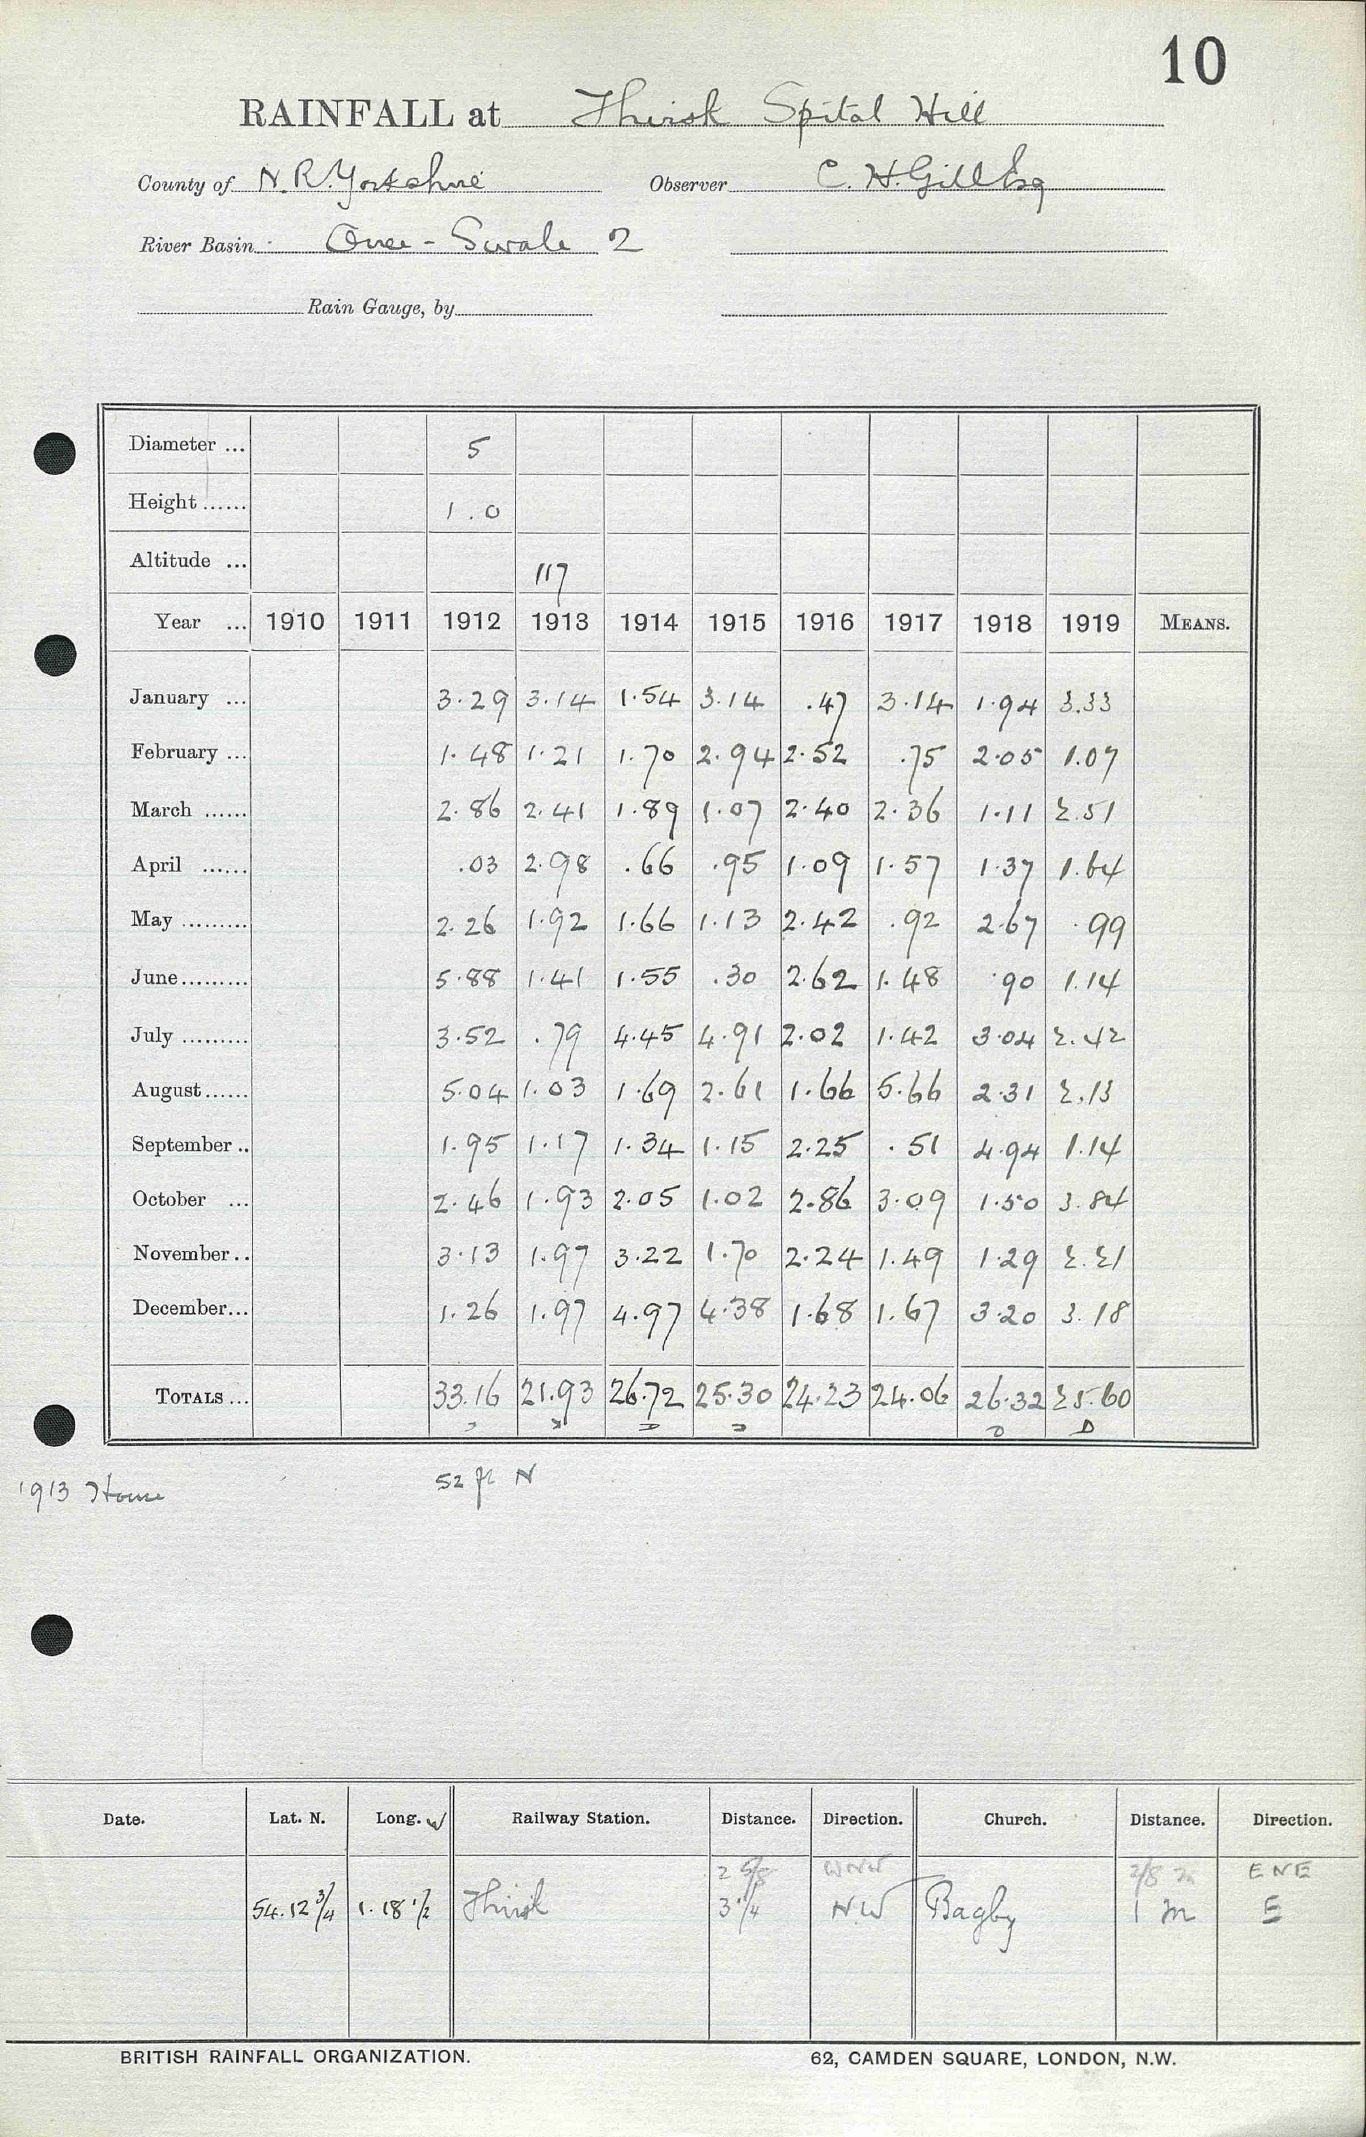 10
RAINFALL at Thirsk Spital Hill
County of N.R. Yorkshire Observer C. H. Gill Esq
River Basin Ouse - Swale 2
Rain Gauge, by
Diameter ... 5
Height ...... 1.0
Altitude ... 117
Year ... 1910 1911 1912 1913 1914 1915 1916 1917 1918 1919 MEANS.
January ... 3.29 3.14 1.54 3.14 .47 3.14 1.94 3.33
February ... 1.48 1.21 1.70 2.94 2.52 .75 2.05 1.07
March ...... 2.86 2.41 1.89 1.07 2.40 2.36 1.11 2.51
April ...... .03 2.98 .66 .95 1.09 1.57 1.37 1.64
May ......... 2.26 1.92 1.66 1.13 2.42 .92 2.67 .99
June ......... 5.88 1.41 1.55 .30 2.62 1.48 .90 1.14
July ......... 3.52 .79 4.45 4.91 2.02 1.42 3.04 2.42
August ...... 5.04 1.03 1.69 2.61 1.66 5.66 2.31 2.13
September .. 1.95 1.17 1.34 1.15 2.25 .51 4.94 1.14
October ... 2.46 1.93 2.05 1.02 2.86 3.09 1.50 3.84
November .. 3.13 1.97 3.22 1.70 2.24 1.49 1.29 2.21
December... 1.26 1.97 4.97 4.38 1.68 1.67 3.20 3.18
TOTALS ... 33.16 21.93 26.72 25.30 24.23 24.06 26.32 25.60
D D
1913 House 52 ft N
Date. Lat. N. Long. W Railway Station. Distance. Direction. Church. Distance. Direction.
2 5/8 WNW 7/8 m ENE
54.12 3/4 1.18 1/2 Thirsk 3 1/4 N.W Bagby 1 m E
BRITISH RAINFALL ORGANIZATION. 62, CAMDEN SQUARE, LONDON, N.W.